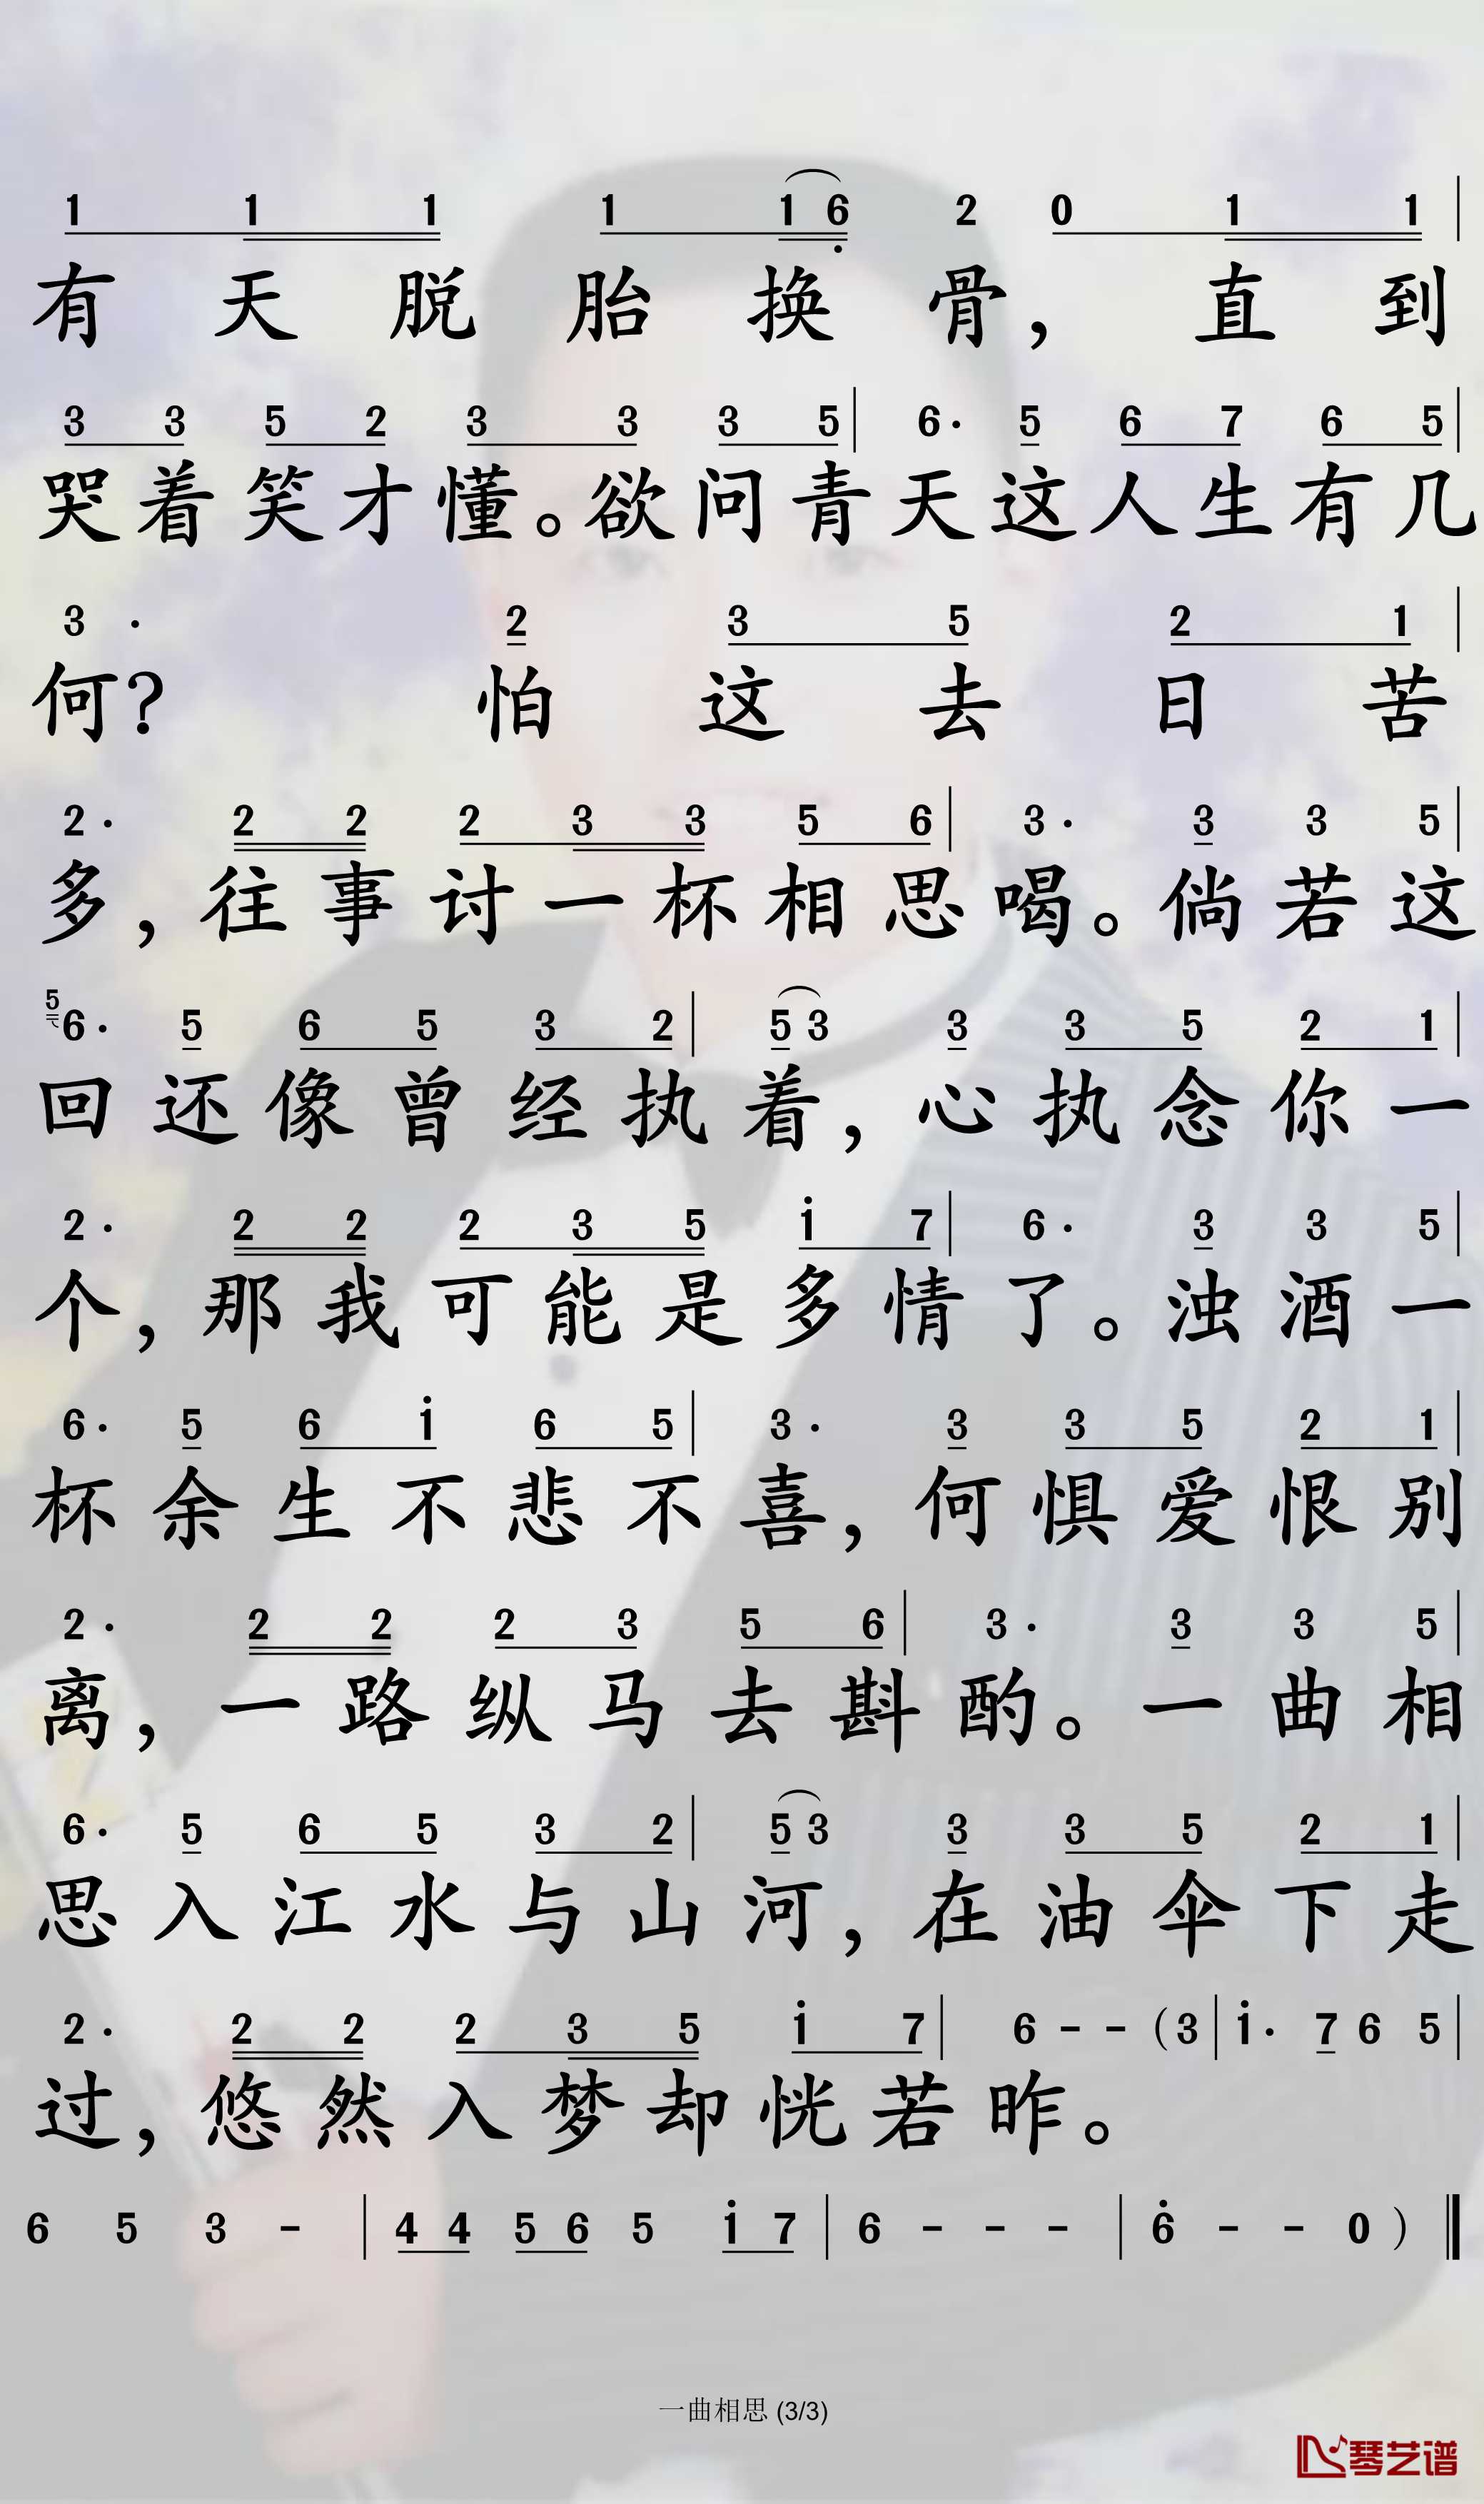 1 1 1 1 1 6 2 0 1 1
有天脱胎换骨，直到
3 3 5 2 3 3 3 5 6· 5 6 7 6 5
哭着笑才懂。欲问青天这人生有几
3· 2 3 5 2 1
何？怕这去日苦
2· 2 2 2 3 3 5 6 3· 3 3 5
多，往事讨一杯相思喝。倘若这
5 6· 5 6 5 3 2 5 3 3 3 5 2 1
回还像曾经执着，心执念你一
2· 2 2 2 3 5 i 7 6· 3 3 5
个，那我可能是多情了。浊酒一
6· 5 6 i 6 5 3· 3 3 5 2 1
杯余生不悲不喜，何惧爱恨别
2· 2 2 2 3 5 6 3· 3 3 5
离，一路纵马去斟酌。一曲相
6· 5 6 5 3 2 5 3 3 3 5 2 1
思入江水与山河，在油伞下走
2· 2 2 2 3 5 i 7 6 - - (3 i· 7 6 5
过，悠然入梦却恍若昨。
6 5 3 - 4 4 5 6 5 i 7 6 - - - 6 - - 0 )
一曲相思 (3/3)
琴艺谱